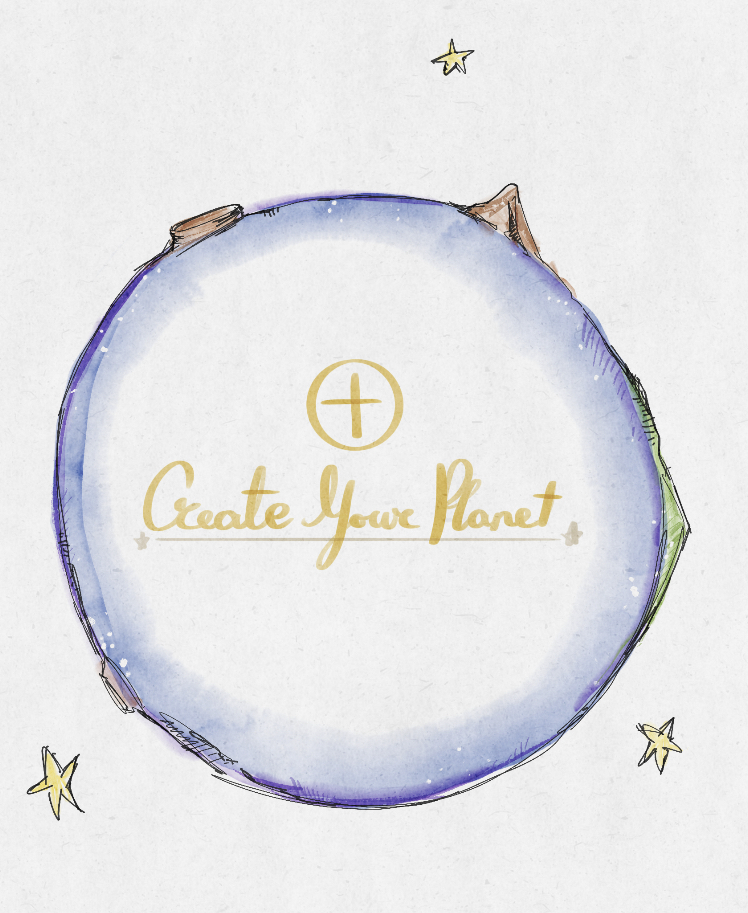 Create Your Planet